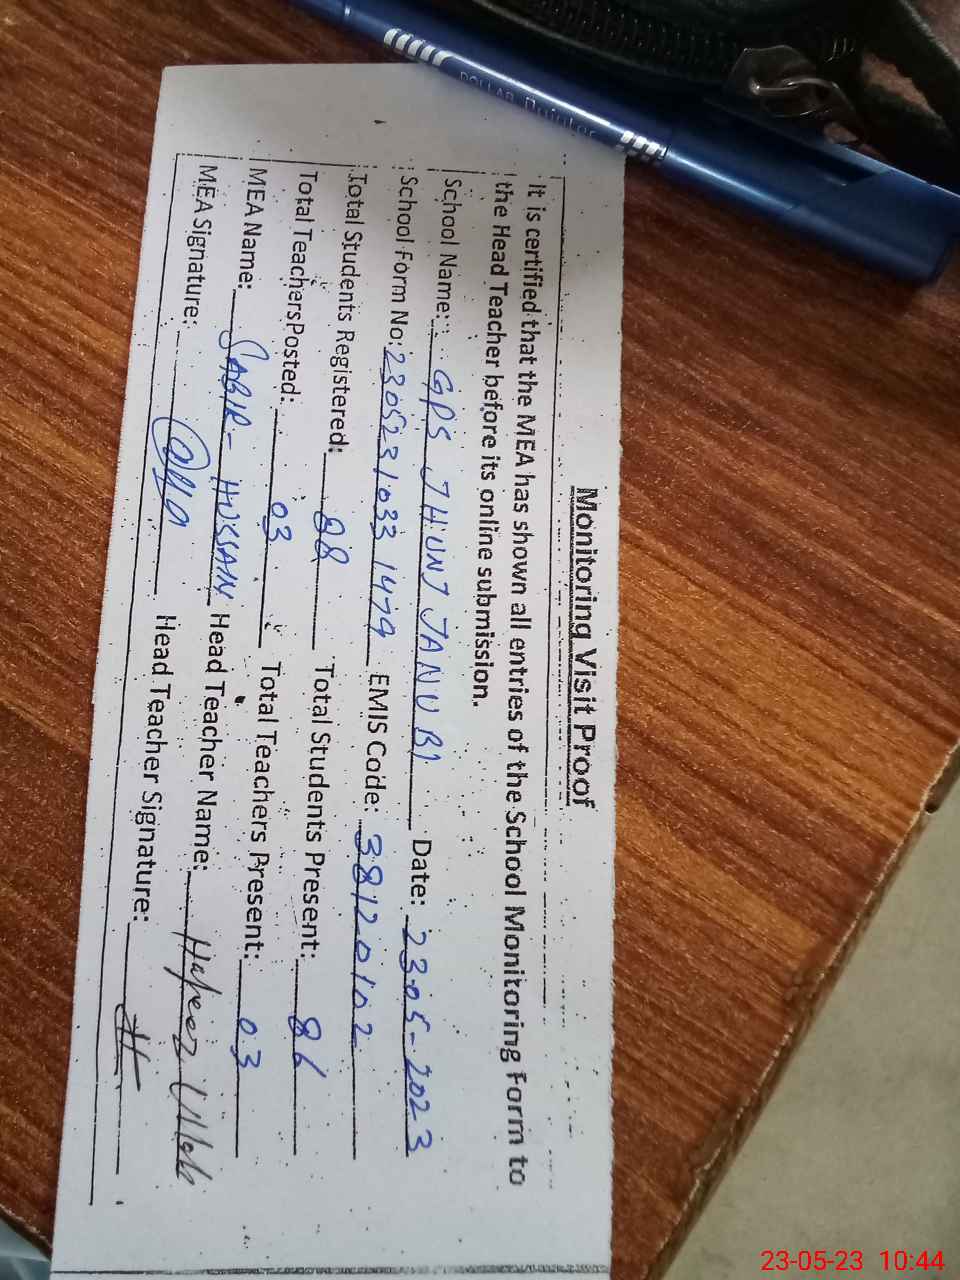 DOLLAR Pointer
Monitoring Visit Proof
It is certified that the MEA has shown all entries of the School Monitoring Form to
the Head Teacher before its online submission.
School Name: GPS JHUNJ JANUBI Date: 23-05-2023
School Form No: 230523 1033 1479 EMIS Code: 38120102
Total Students Registered: 88 Total Students Present: 86
Total Teachers Posted: 03 Total Teachers Present: 03
MEA Name: SABIR- HUSSAIN Head Teacher Name: Hafeez Ullah
MEA Signature: Head Teacher Signature:
23-05-23 10:44